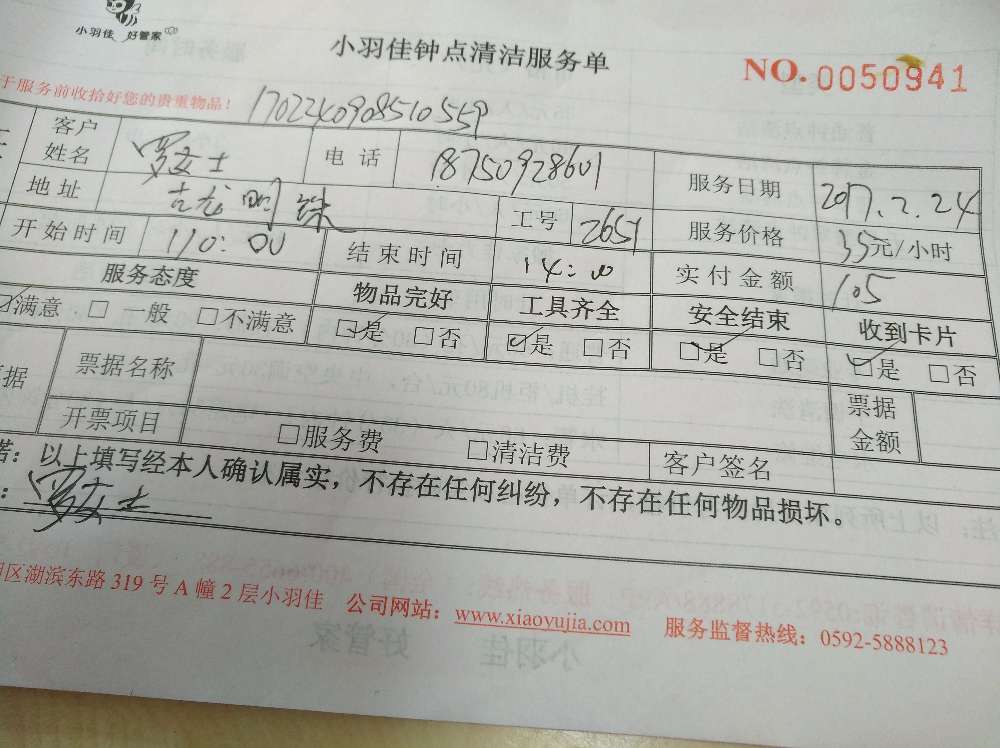 小羽佳 好管家
小羽佳钟点清洁服务单
NO. 0050941
于服务前收拾好您的贵重物品！
170224090851055P
客户姓名 罗女士 电话 18750928601 服务日期 2017.2.24
地址 古龙明珠 工号 2651 服务价格 35元/小时
开始时间 110:00 结束时间 14:00 实付金额 105
服务态度 物品完好 工具齐全 安全结束 收到卡片
☑满意 □一般 □不满意 ☑是 □否 ☑是 □否 ☑是 □否 ☑是 □否
据 票据名称 票据金额
开票项目 □服务费 □清洁费 客户签名
诺：以上填写经本人确认属实，不存在任何纠纷，不存在任何物品损坏。
：罗女士
区湖滨东路 319 号 A 幢 2 层小羽佳 公司网站：www.xiaoyujia.com 服务监督热线：0592-5888123